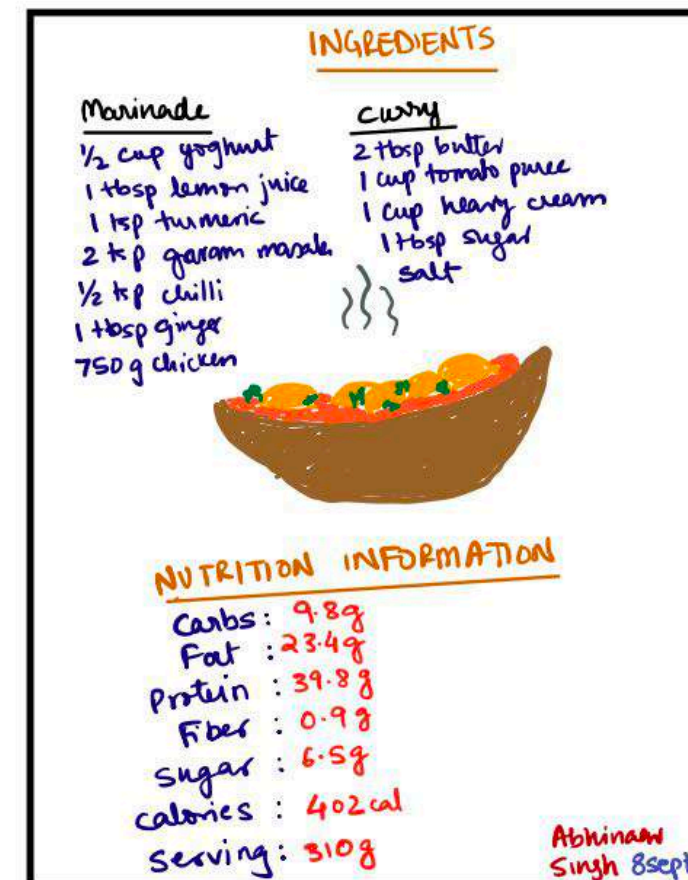 INGREDIENTS
Marinade
1/2 cup yoghurt
1 tbsp lemon juice
1 tsp turmeric
2 tsp garam masala
1/2 tsp chilli
1 tbsp ginger
750 g chicken
Curry
2 tbsp butter
1 cup tomato puree
1 cup heavy cream
1 tbsp sugar
salt
NUTRITION INFORMATION
Carbs: 9.8g
Fat : 23.4g
Protein : 39.8g
Fiber : 0.9g
Sugar : 6.5g
Calories : 402 cal
Serving: 310g
Abhinaav
Singh 8sept